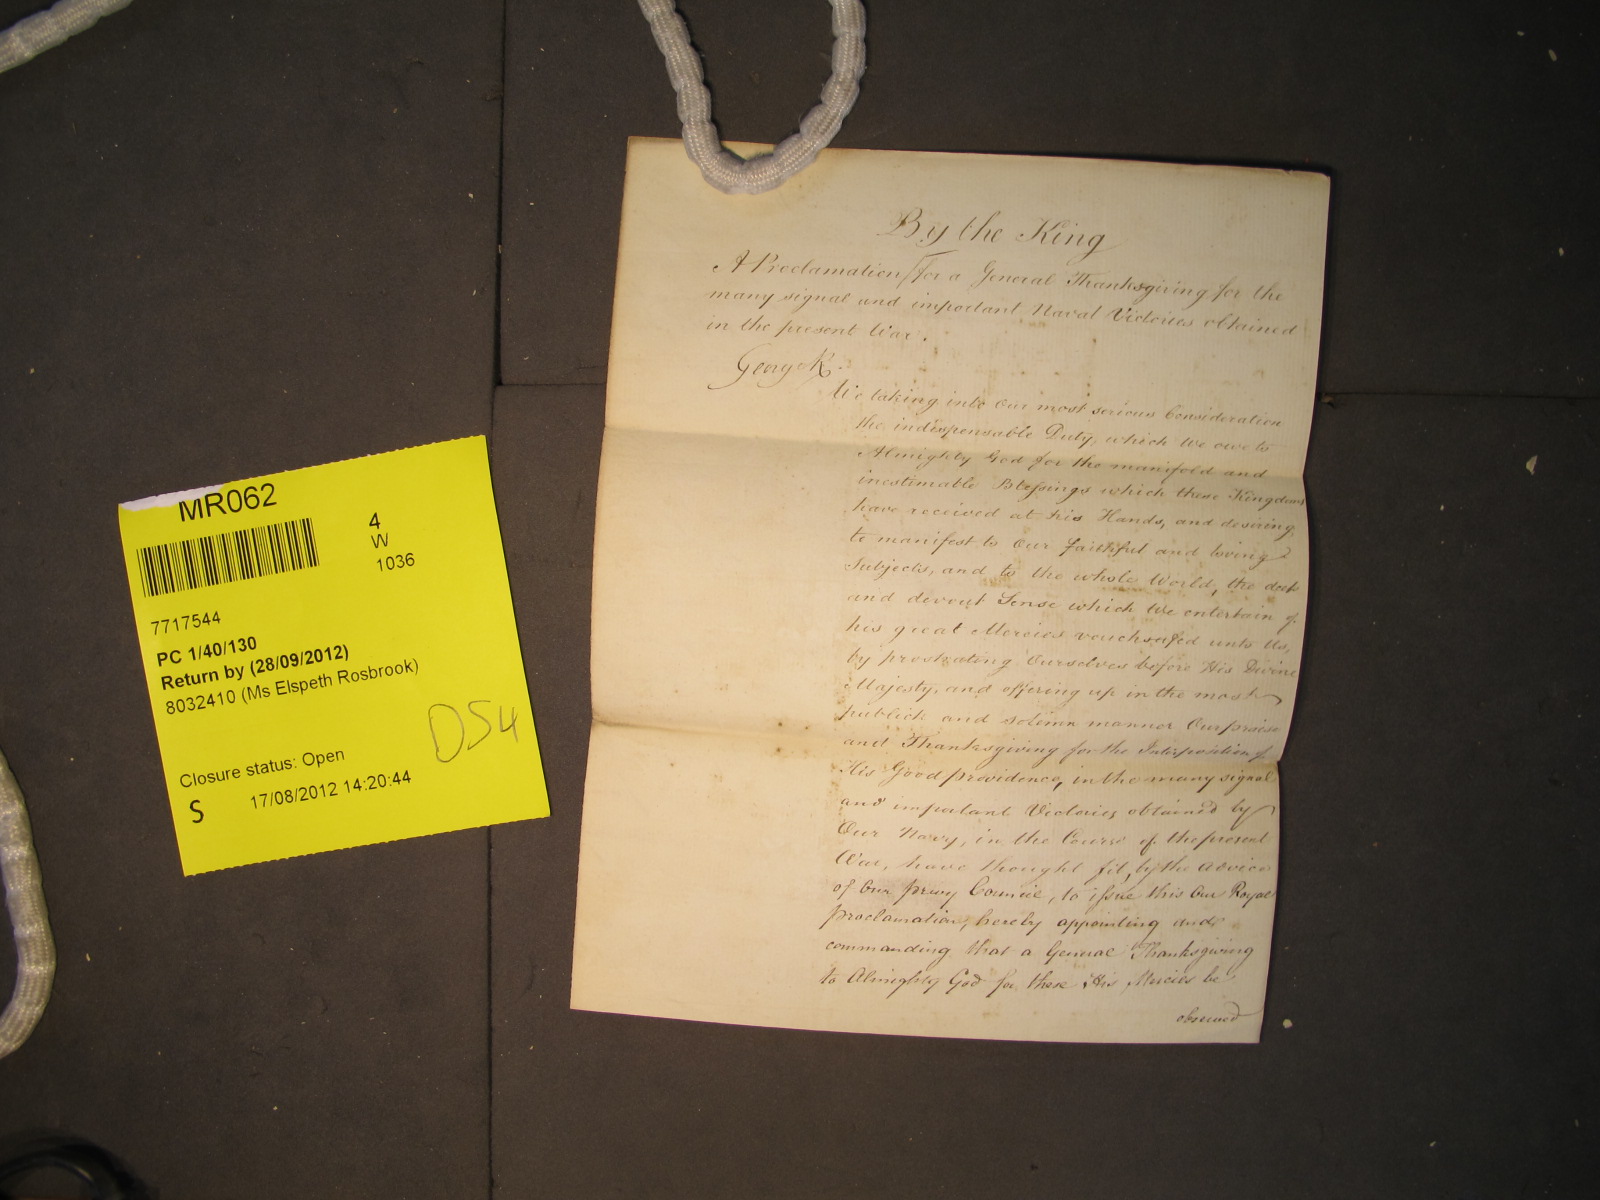 By the King
A Proclamation for a General Thanksgiving for the
many signal and important Naval Victories obtained
in the present War.
George R.
We taking into Our most serious Consideration
the indispensable Duty, which We owe to
Almighty God for the manifold and
inestimable Blessings which these Kingdoms
have received at his Hands, and desiring
to manifest to Our faithful and loving
Subjects, and to the whole World, the deep
and devout Sense which We entertain of
his great Mercies vouchsafed unto Us,
by prostrating Ourselves before His Divine
Majesty, and offering up in the most
publick and solemn manner Our praise
and Thanksgiving for the Interposition of
His Good providence, in the many signal
and important Victories obtained by
Our Navy, in the Course of the present
War, have thought fit, by the Advice
of Our privy Council, to issue this Our Royal
proclamation, hereby appointing and
commanding that a General Thanksgiving
to Almighty God for these His Mercies be
observed
MR062
4
W
1036
7717544
PC 1/40/130
Return by (28/09/2012)
8032410 (Ms Elspeth Rosbrook)
DS4
Closure status: Open
S 17/08/2012 14:20:44